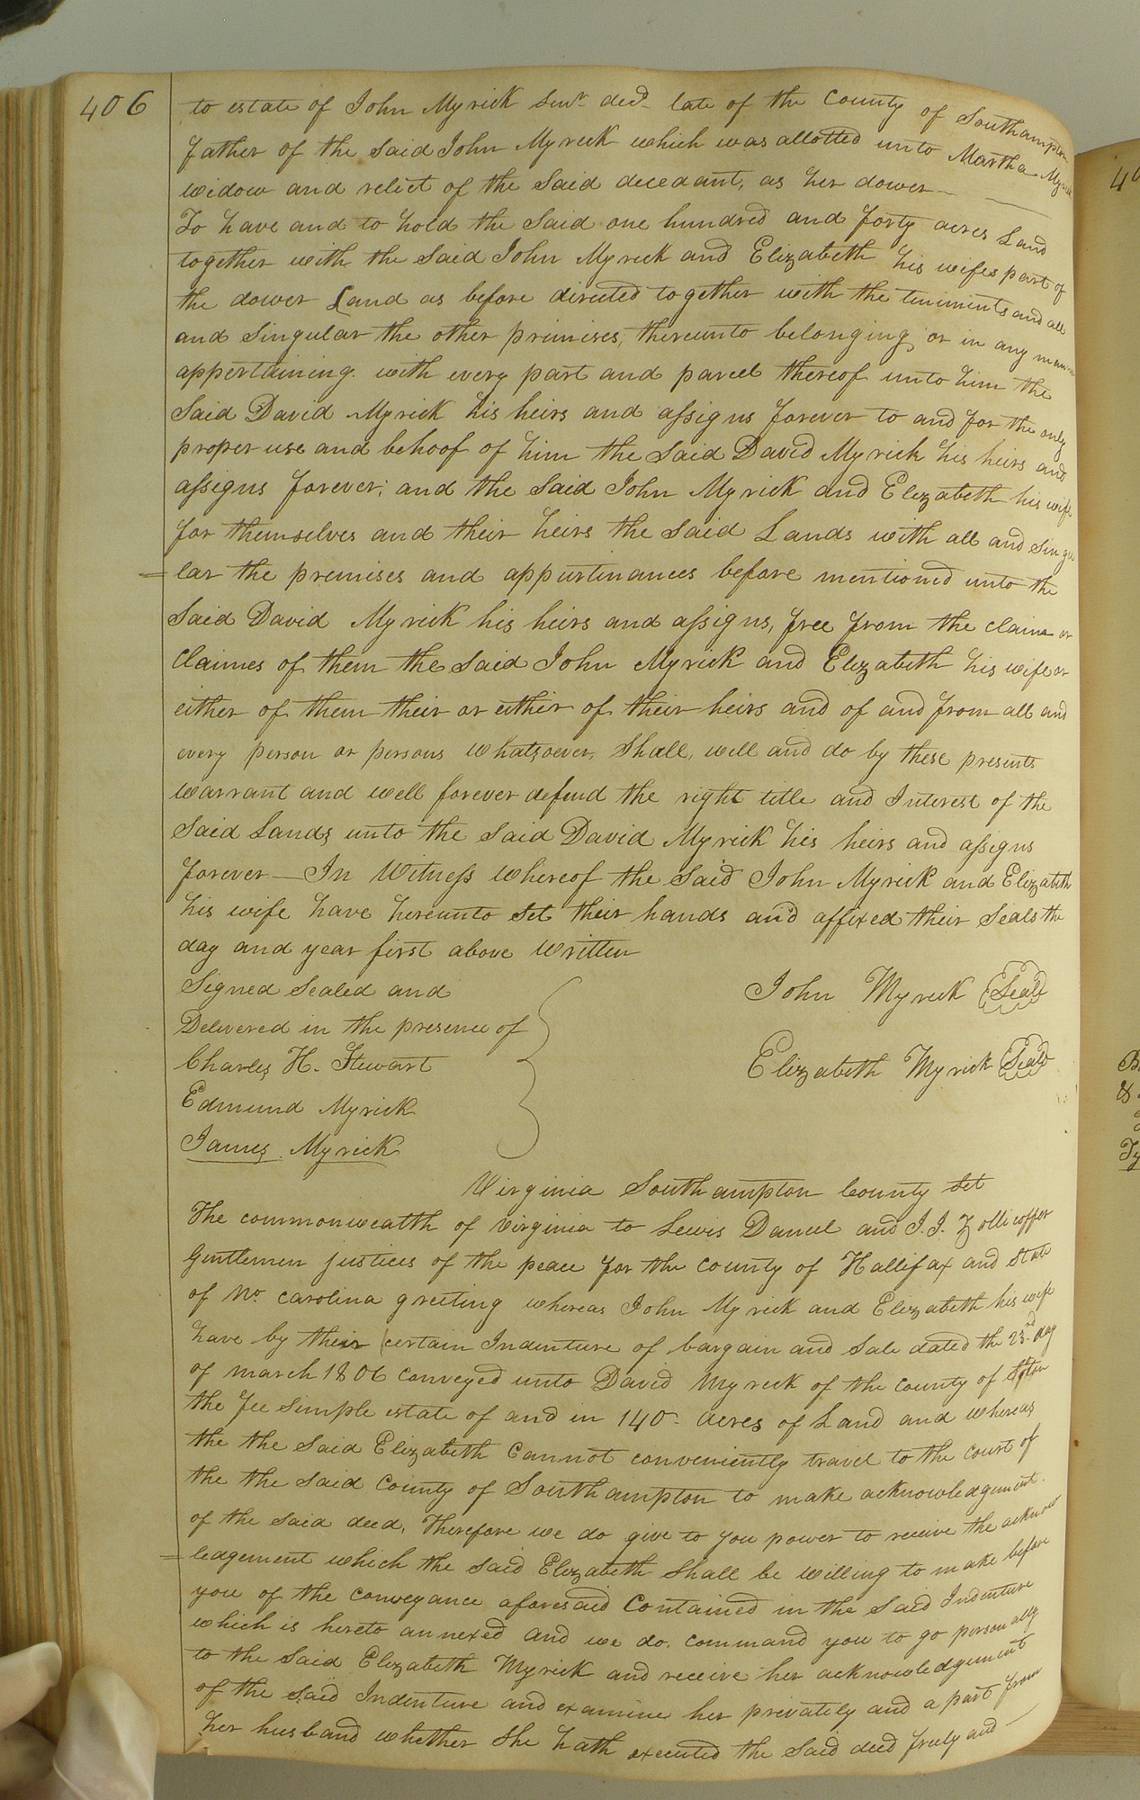 406
to estate of John Myrick Senr. decd. late of the County of Southampton
father of the said John Myrick which was allotted unto Martha Myrick
widow and relict of the Said decedant, as her dower
To have and to hold the Said one hundred and forty acres Land
together with the Said John Myrick and Elizabeth his wifes part of
the dower Land as before directed together with the teniments and all
and Singular the other primises, thereunto belonging or in any manner
appertaining. with every part and parcel thereof unto him the
Said David Myrick his heirs and assigns forever to and for the only
proper use and behoof of him the Said David Myrick his heirs and
assigns forever; and the Said John Myrick and Elizabeth his wife
for themselves and their heirs the Said Lands with all and Singu
=lar the premises and appurtinances before mentioned unto the
Said David Myrick his heirs and assigns, free from the claim or
Claimes of them the Said John Myrick and Elizabeth his wife or
either of them their or either of their heirs and of and from all and
every person or persons whatsoever, Shall, well and do by these presents
warrant and well forever defend the right title and Interest of the
Said Lands unto the Said David Myrick his heirs and assigns
forever — In Witness whereof the Said John Myrick and Elizabeth
his wife have hereunto Set their hands and affixed their Seals the
day and year first above written
Signed Sealed and
John Myrick Seal
Delivered in the presence of
Charles H. Stewart
Elizabeth Myrick Seal
Edmund Myrick
James Myrick
Virginia Southampton County Set
The commonwealth of Virginia to Lewis Daniel and J. J. Zollicoffer
Gentlemen justices of the peace for the County of Hallifax and State
of No. Carolina greeting whereas John Myrick and Elizabeth his wife
have by their certain Indenture of bargain and Sale dated the 23rd day
of march 1806 conveyed unto David Myrick of the County of
the fee simple estate of and in 140 acres of Land and whereas
the the Said Elizabeth Cannot conveniently travel to the court of
the the Said County of Southampton to make acknowledgement
of the Said deed, Therefore we do give to you power to receive the acknow
=ledgement which the Said Elizabeth Shall be willing to make before
you of the conveyance aforesaid Contained in the Said Indenture
which is hereto annexed and we do. command you to go personally
to the Said Elizabeth Myrick and receive her acknowledgement
of the Said Indenture and examine her privately and a part from
her husband whether She hath executed the Said deed freely and —